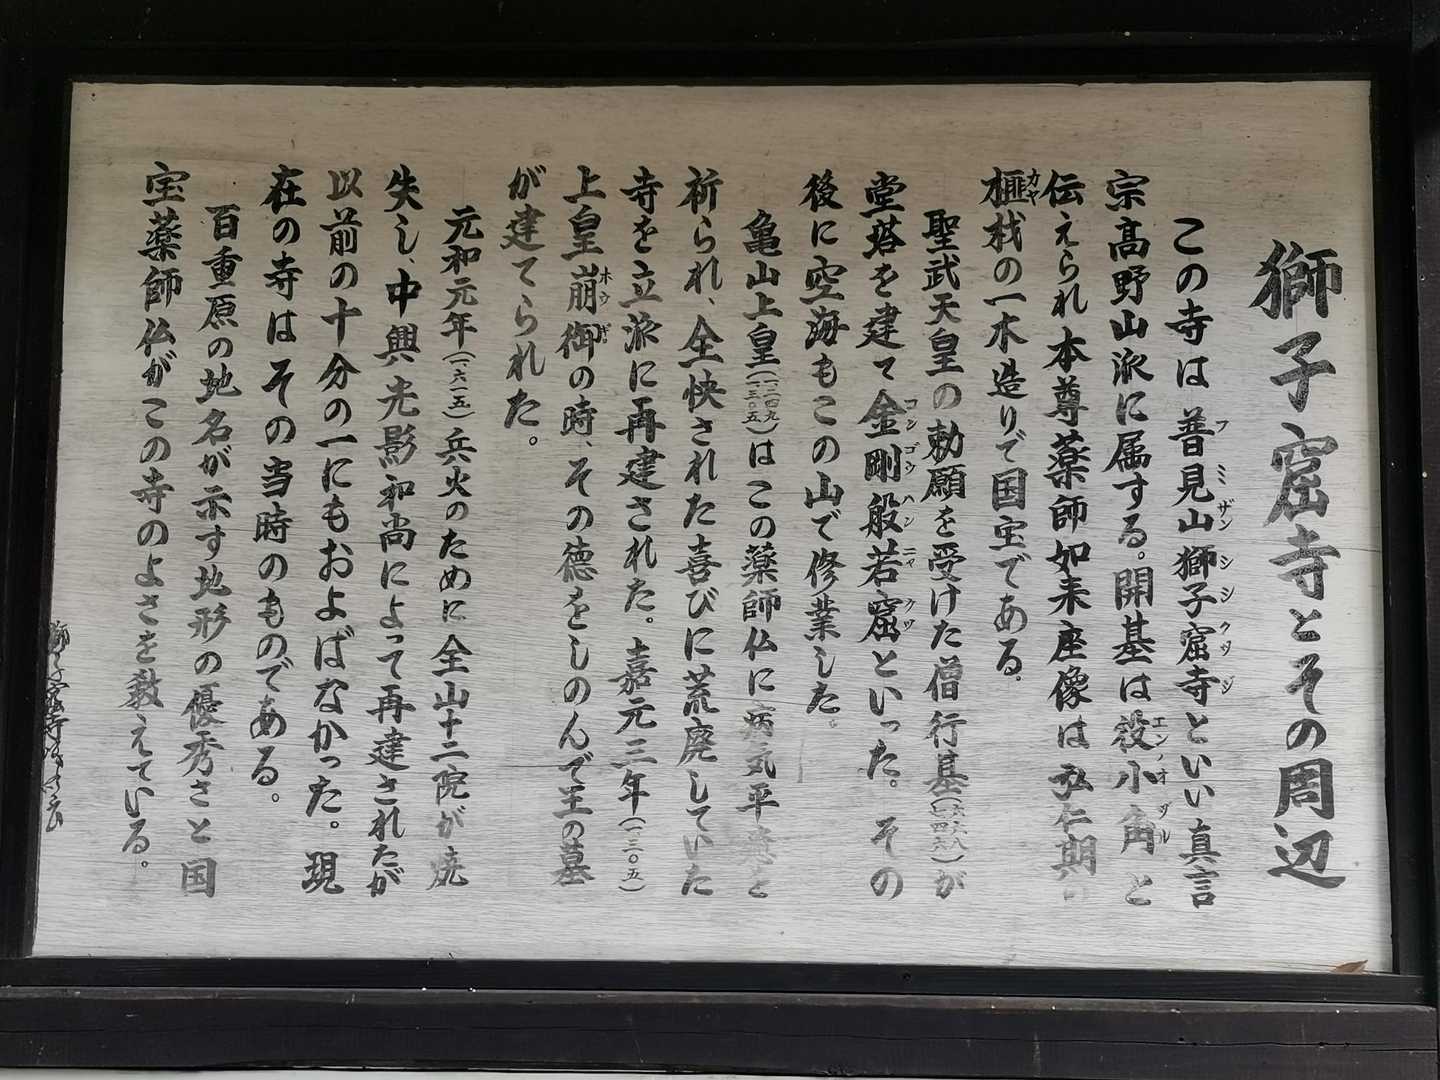 獅子窟寺とその周辺
この寺は普見山獅子窟寺といい真言
宗高野山派に属する。開基は役小角と
伝えられ本尊薬師如来座像は弘仁期の
榧材の一木造りで国宝である。
聖武天皇の勅願を受けた僧行基(六六八七四九)が
堂塔を建て金剛般若窟といった。その
後に空海もこの山で修業した。
亀山上皇(一二四九一三〇五)はこの薬師仏に病気平癒を
祈られ、全快された喜びに荒廃していた
寺を立派に再建された。嘉元三年(一三〇五)
上皇崩御の時、その徳をしのんで王の墓
が建てられた。
元和元年(一六一五)兵火のために全山十二院が焼
失し、中興光影和尚によって再建されたが
以前の十分の一にもおよばなかった。現
在の寺はその当時のものである。
百重原の地名が示す地形の優秀さと国
宝薬師仏がこの寺のよさを教えている。